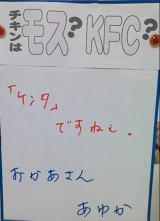 チキンは モス? KFC?
「ケンタ」
ですねぇ.
おかあさん
あゆか